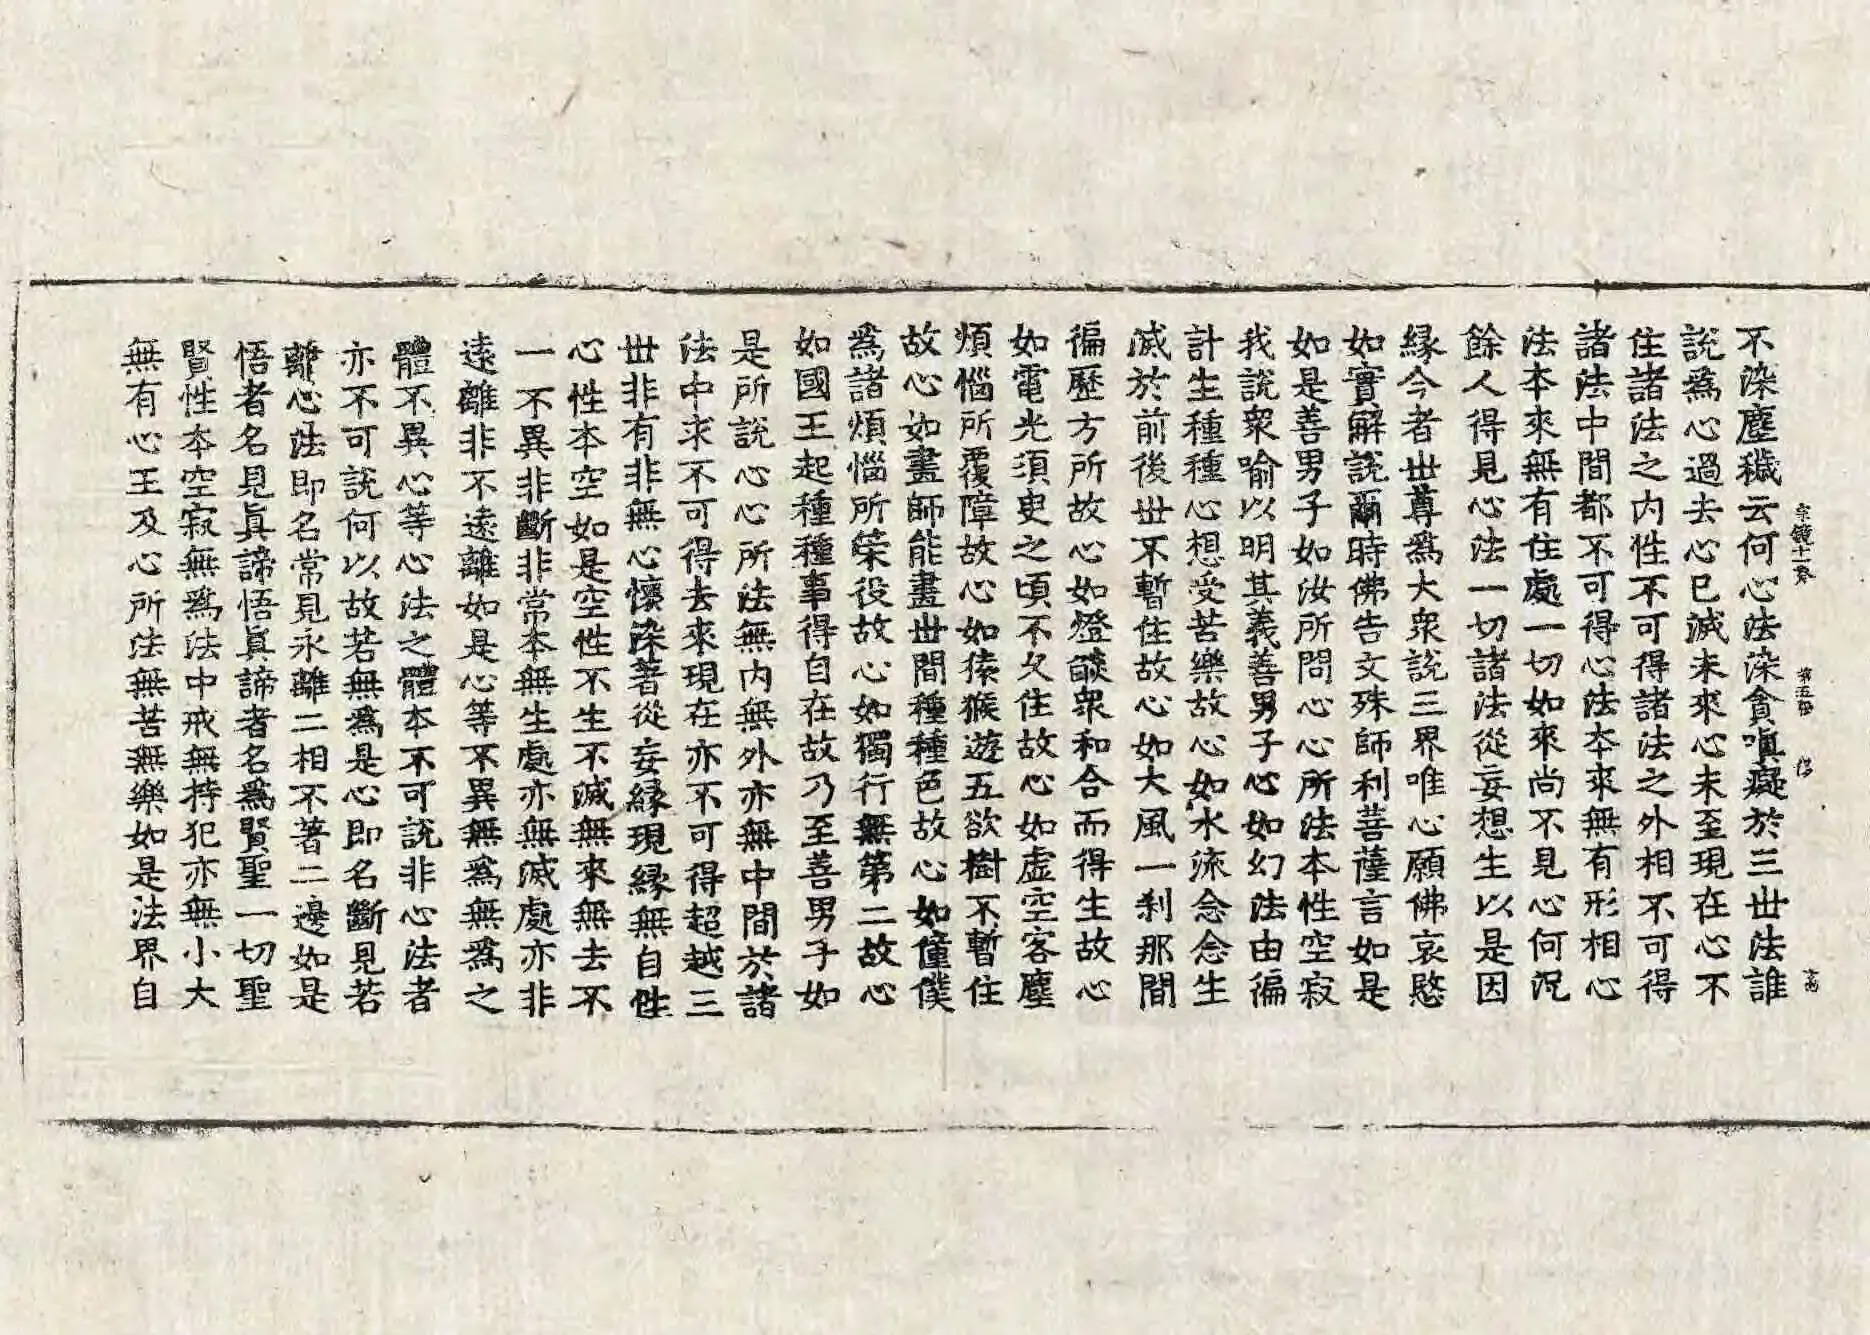 宗鏡十一卷　第五張
不染塵穢云何心法染貪嗔癡於三世法誰
説爲心過去心已滅未來心未至現在心不
住諸法之内性不可得諸法之外相不可得
諸法中間都不可得心法本來無有形相心
法本來無有住處一切如來尚不見心何況
餘人得見心法一切諸法從妄想生以是因
縁今者世尊爲大衆説三界唯心願佛哀愍
如實解説爾時佛告文殊師利菩薩言如是
如是善男子如汝所問心心所法本性空寂
我説衆喻以明其義善男子心如幻法由徧
計生種種心想受苦樂故心如水流念念生
滅於前後世不暫住故心如大風一刹那間
徧歷方所故心如燈燄衆和合而得生故心
如電光須臾之頃不久住故心如虚空客塵
煩惱所覆障故心如猿猴遊五欲樹不暫住
故心如畫師能畫世間種種色故心如僮僕
爲諸煩惱所策役故心如獨行無第二故心
如國王起種種事得自在故乃至善男子如
是所說心心所法無内無外亦無中間於諸
法中求不可得去來現在亦不可得超越三
世非有非無心懷染著從妄縁現縁無自性
心性本空如是空性不生不滅無來無去不
一不異非斷非常本無生處亦無滅處亦非
遠離非不遠離如是心等不異無爲無爲之
體不異心等心法之體本不可説非心法者
亦不可説何以故若無爲是心即名斷見若
離心法即名常見永離二相不著二邊如是
悟者名見眞諦悟眞諦者名爲賢聖一切聖
賢性本空寂無爲法中戒無持犯亦無小大
無有心王及心所法無苦無樂如是法界自